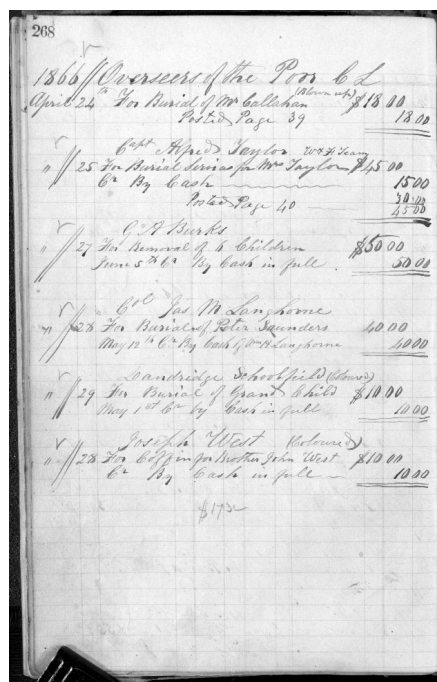 268
1866 Overseers of the Poor C L
April 24th For Burial of Mr Callahan (Blown up) $18 00
Posted Page 39 18 00
Capt Alfred Taylor
" 25 For Burial Servises for Mrs Taylor $45 00
Cr By Cash 15 00
30 00
Posted Page 40 45 00
G A Burks
" 27 For Removal of 6 Children $50 00
June 5th Cr By Cash in full 50 00
Col Jas M Langhorne
" 28 For Burial of Peter Saunders 40 00
May 12th Cr By Cash of Wm H Langhorne 40 00
Landridge Schoolfield (Coloured)
" 29 For Burial of Grand Child $10 00
May 1st Cr by Cash in full 10 00
Joseph West (Coloured)
" 28 For Coffin for Brother John West $10 00
Cr By Cash in full 10 00
$173